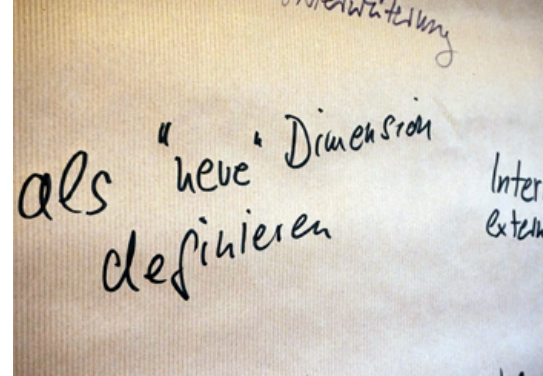 als "neue" Dimension
definieren
Inter
extern